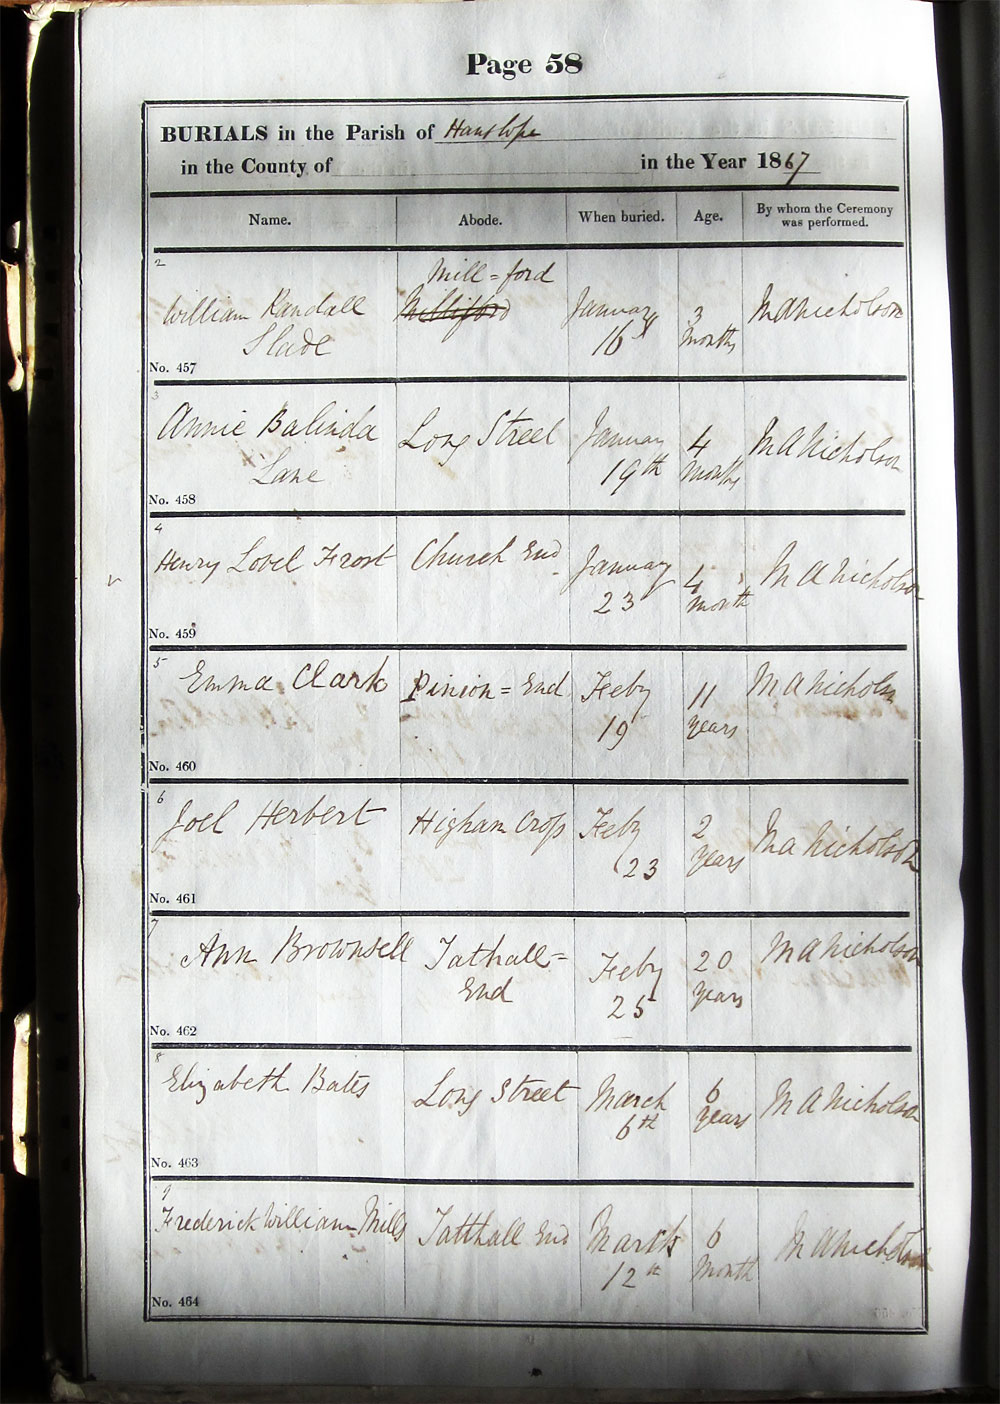 Page 58
BURIALS in the Parish of Hanslope
in the County of in the Year 1867
Name. Abode. When buried. Age. By whom the Ceremony was performed.
2
William Randall Slade
Mill=ford
Millifford
January 16th
3 months
M A Nicholson
No. 457
3
Annie Balinda Lane
Long Street
January 19th
4 months
M A Nicholson
No. 458
4
Henry Lovel Frost
Church End
January 23
4 month
M A Nicholson
No. 459
5
Emma Clark
Pinion=End
Feby 19
11 years
M A Nicholson
No. 460
6
Joel Herbert
Higham Cross
Feby 23
2 years
M A Nicholson
No. 461
7
Ann Brownsell
Tathall=End
Feby 25
20 years
M A Nicholson
No. 462
8
Elizabeth Bates
Long Street
March 6th
6 years
M A Nicholson
No. 463
9
Frederick William Mills
Tatthall End
March 12th
6 Month
M A Nicholson
No. 464